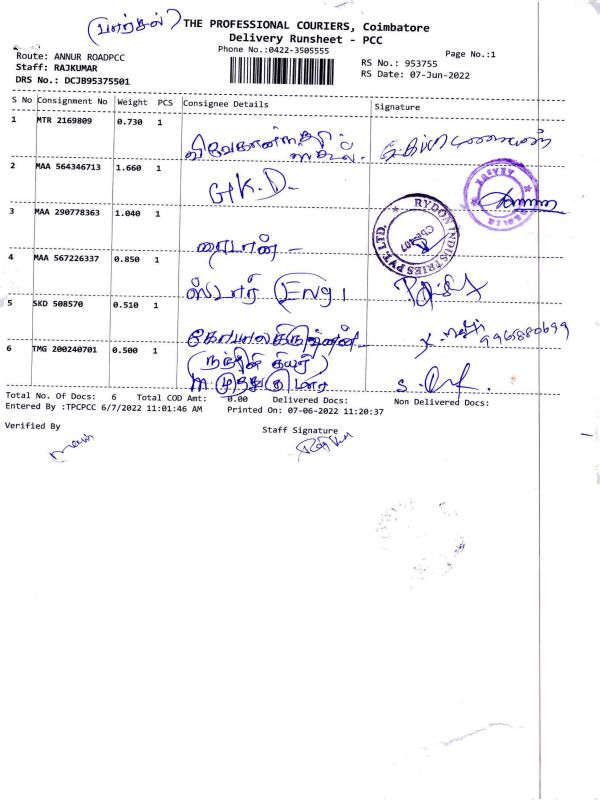 (பார்சல்) THE PROFESSIONAL COURIERS, Coimbatore
Delivery Runsheet - PCC
Phone No.:0422-3505555
Page No.:1
Route: ANNUR ROADPCC
RS No.: 953755
Staff: RAJKUMAR
RS Date: 07-Jun-2022
DRS No.: DCJB95375501
S No Consignment No Weight PCS Consignee Details Signature
1 MTR 2169809 0.730 1
விவேகானந்தா
2 MAA 564346713 1.660 1
G.K.D -
3 MAA 290778363 1.040 1
RYDON INDUSTRIES PVT. LTD.
CBE-407
ரைடான் -
4 MAA 567226337 0.850 1
ஸ்டார் (Eng)
5 SKD 508570 0.510 1
கோபாலகிருஷ்ணன் -
9965880699
6 TMG 200240701 0.500 1
M. முத்துகுமார்
Total No. Of Docs: 6 Total COD Amt: 0.00 Delivered Docs: Non Delivered Docs:
Entered By :TPCPCC 6/7/2022 11:01:46 AM Printed On: 07-06-2022 11:20:37
Verified By Staff Signature